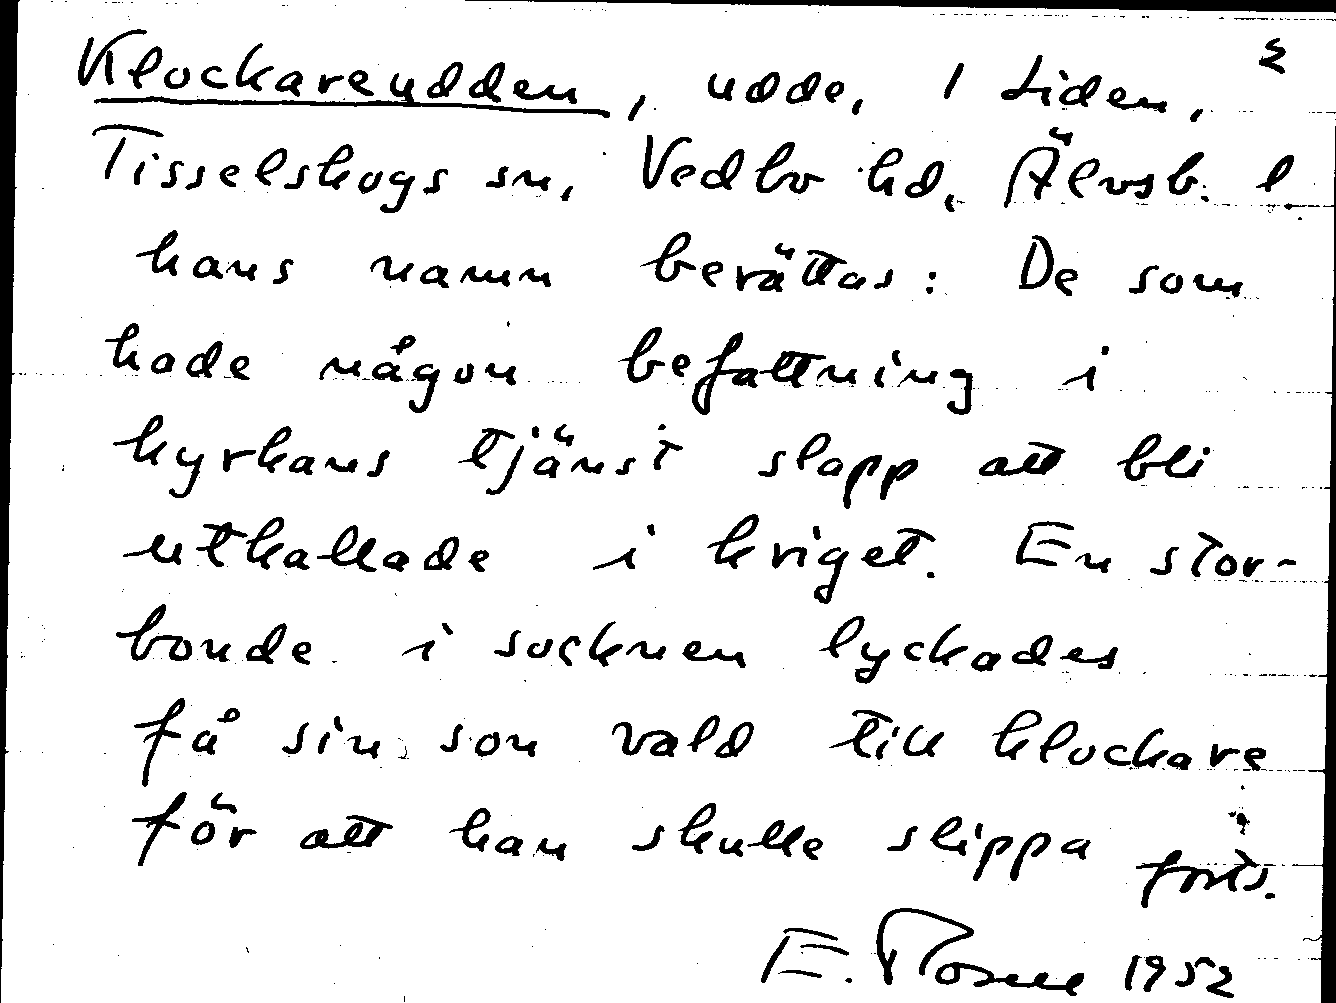 2
Klockareudden, udde, i Liden,
Tisselskogs sn, Vedbo hd, Älvsb. l.
hans namn berättas: De som
hade någon befattning i
kyrkans tjänst slapp att bli
utkallade i kriget. En stor-
bonde i socknen lyckades
få sin son vald till klockare
för att han skulle slippa forts.
E. 1952